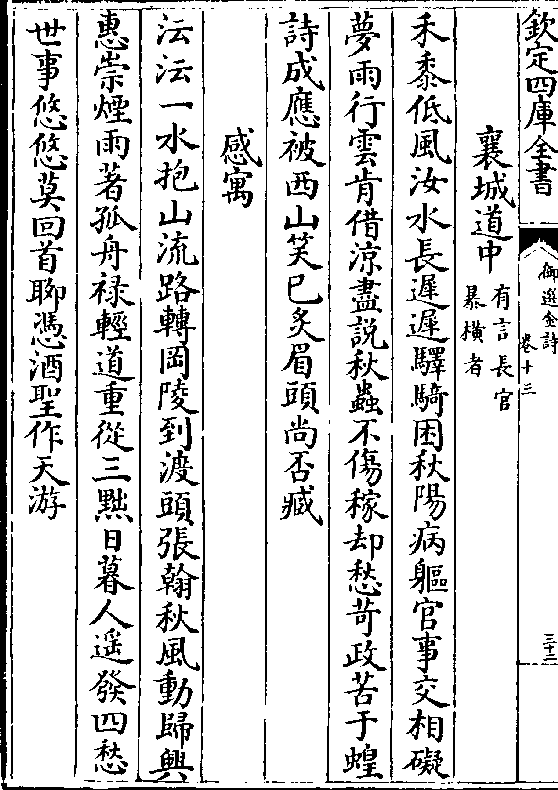 欽定四庫全書
御選金詩
卷十三
三十二
襄城道中
有言長官
暴橫者
禾黍低風汝水長遲遲驛騎困秋陽病軀官事交相礙
夢雨行雲肯借涼盡說秋蟲不傷稼却愁苛政苦于蝗
詩成應被西山笑已炙眉頭尚否臧
感寓
沄沄一水抱山流路轉岡陵到渡頭張翰秋風動歸興
惠崇煙雨著孤舟祿輕道重從三黜日暮人遥發四愁
世事悠悠莫回首聊憑酒聖作天游